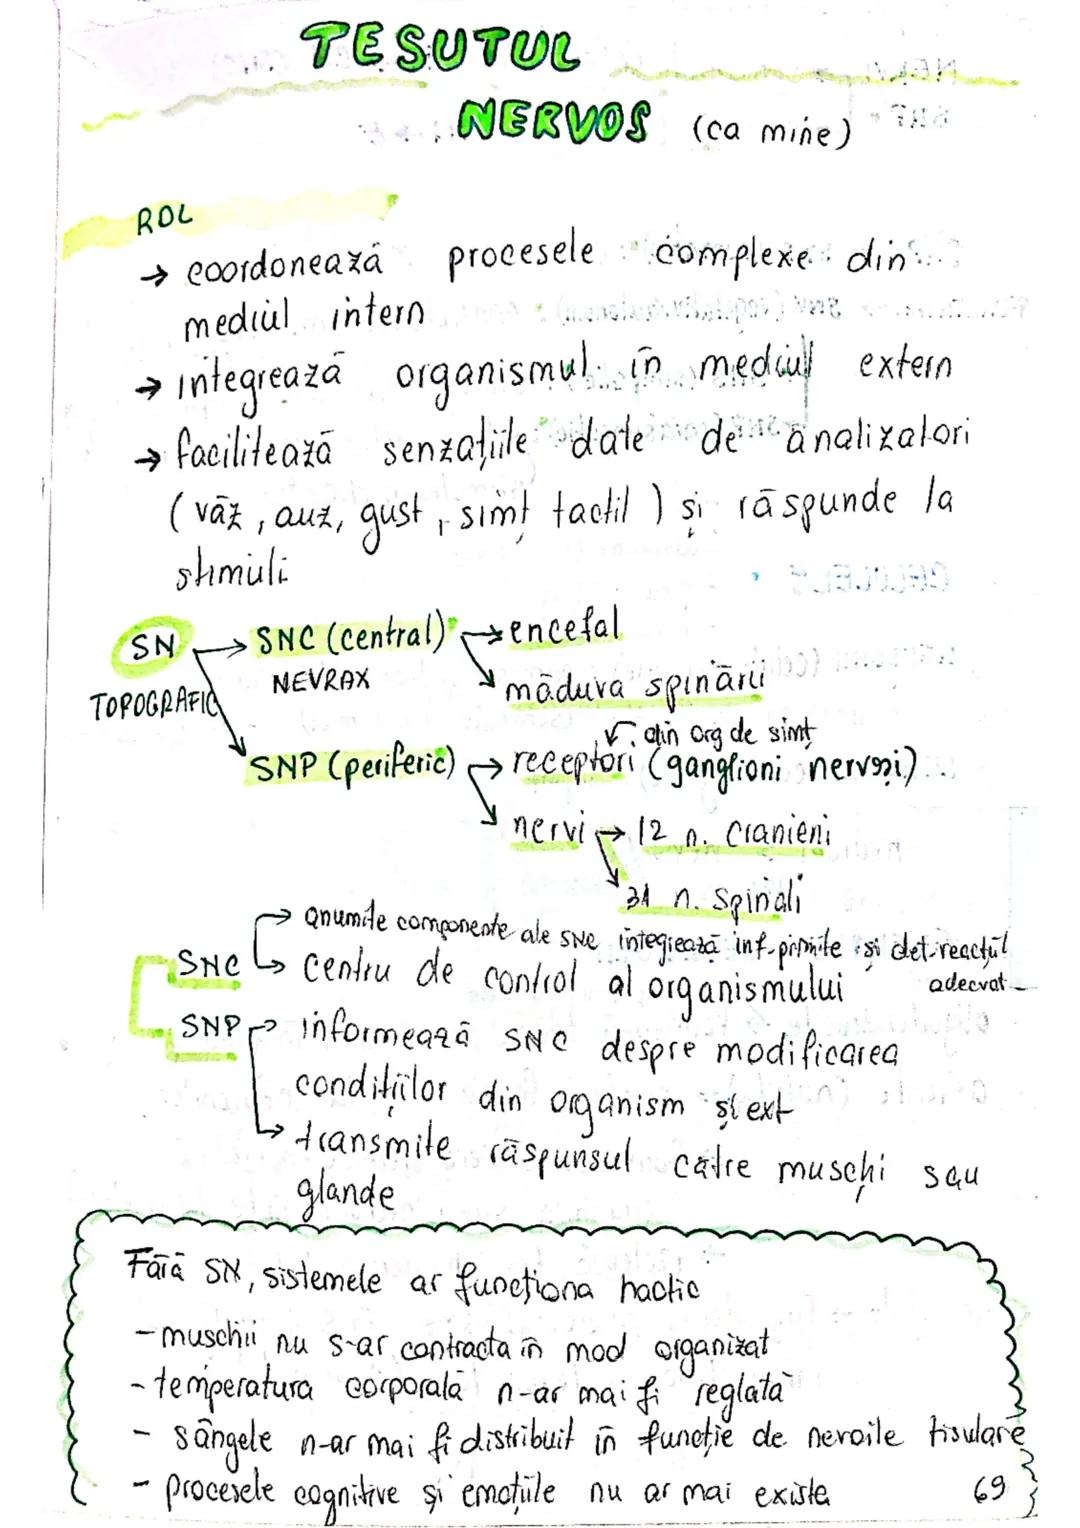 TESUTUL
NERVOS (ca mine)
ROL
→ coordonează procesele complexe din
mediul intern
→ integrează organismul în mediul extern
→ facilitează senzațiile date de analizatori
(văz, auz, gust, simț tactil) și răspunde la
stimuli
SN → SNC (central) → encefal
TOPOGRAFIC NEVRAX
măduva spinării
din org de simț
SNP (periferic) → receptori (ganglioni nervoși)
nervi → 12 n. cranieni
31 n. spinali
→ anumite componente ale SNC integrează inf. primite și det. reacțiil
adecvat
SNC → centru de control al organismului
SNP → informează SNC despre modificarea
condițiilor din organism și ext
→ transmite răspunsul către mușchi sau
glande
Fără SN, sistemele ar funcționa haotic
- muschii nu s-ar contracta în mod organizat
- temperatura corporală n-ar mai fi reglată
- sângele n-ar mai fi distribuit în funcție de nevoile tisulare
- procesele cognitive și emoțiile nu ar mai exista
69